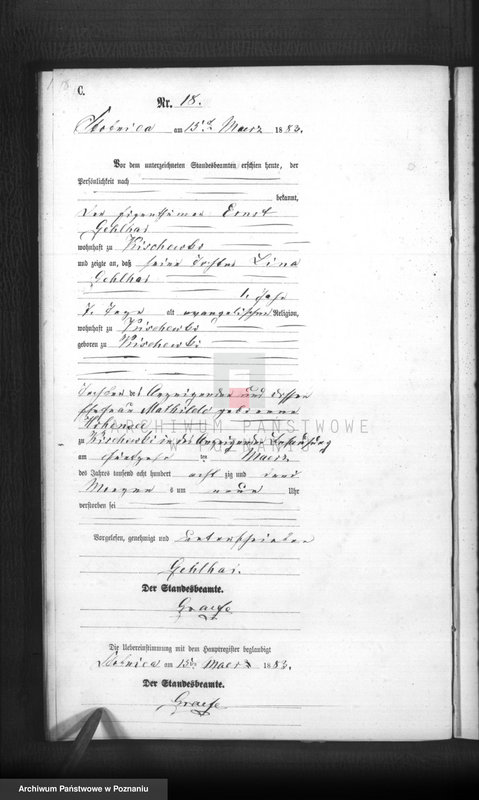 C.
Nr. 18.
Stobnica am 15ten Maerz 1883.
Vor dem unterzeichneten Standesbeamten erschien heute, der
Persönlichkeit nach
bekannt,
der Eigenthümer Ernst
Gehlhar
wohnhaft zu Kischewko
und zeigte an, daß seine Tochter Lina
Gehlhar
1 Jahr
7 Tage alt evangelischer Religion,
wohnhaft zu Kischewko
geboren zu Kischewko
Tochter des Anzeigenden und dessen
Ehefrau Mathilde geborene
zu Kischewko in des Anzeigenden Behausung
am ten Maerz
des Jahres tausend acht hundert acht zig und drei
Morgens um neun Uhr
verstorben sei
Vorgelesen, genehmigt und unterschrieben
Gehlhar.
Der Standesbeamte.
Graefe
Die Uebereinstimmung mit dem Hauptregister beglaubigt
Stobnica am 15ten Maerz 1883.
Der Standesbeamte.
Graefe
ARCHIWUM PAŃSTWOWE
W POZNANIU
Archiwum Państwowe w Poznaniu